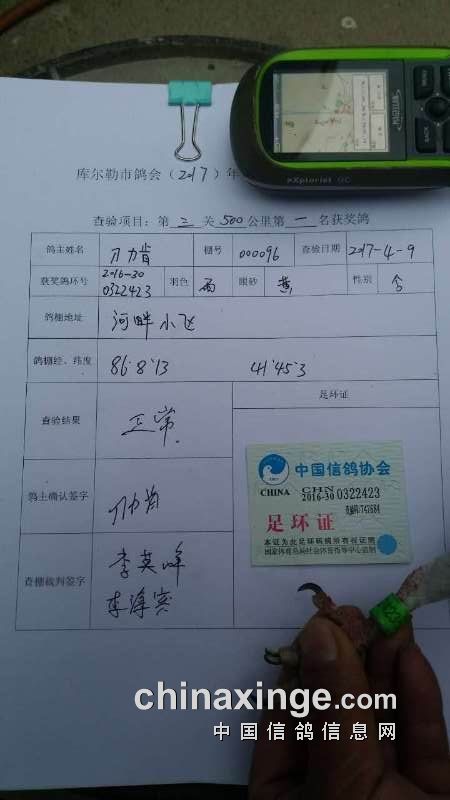 MAGELLAN
MENU
BACK
eXplorist GC
库尔勒市鸽会(2017)年
查验项目:第三关500公里第一名获奖鸽
鸽主姓名 刀力肯 棚号 000096 查验日期 2017-4-9
获奖鸽环号 2016-30 0322423 羽色 雨 眼砂 黄 性别
鸽棚地址 河畔小飞
鸽棚经、纬度 86°8'13 41°45'3
查验结果 正常.
足环证
鸽主确认签字
查棚裁判签字 李英峰
中国信鸽协会
CHINA CHN
2016-30 0322423
足环证
本证为此足环码鸽所有权证明
国家体育总局社会体育指导中心监制
chinaxinge.com
中国信鸽信息网